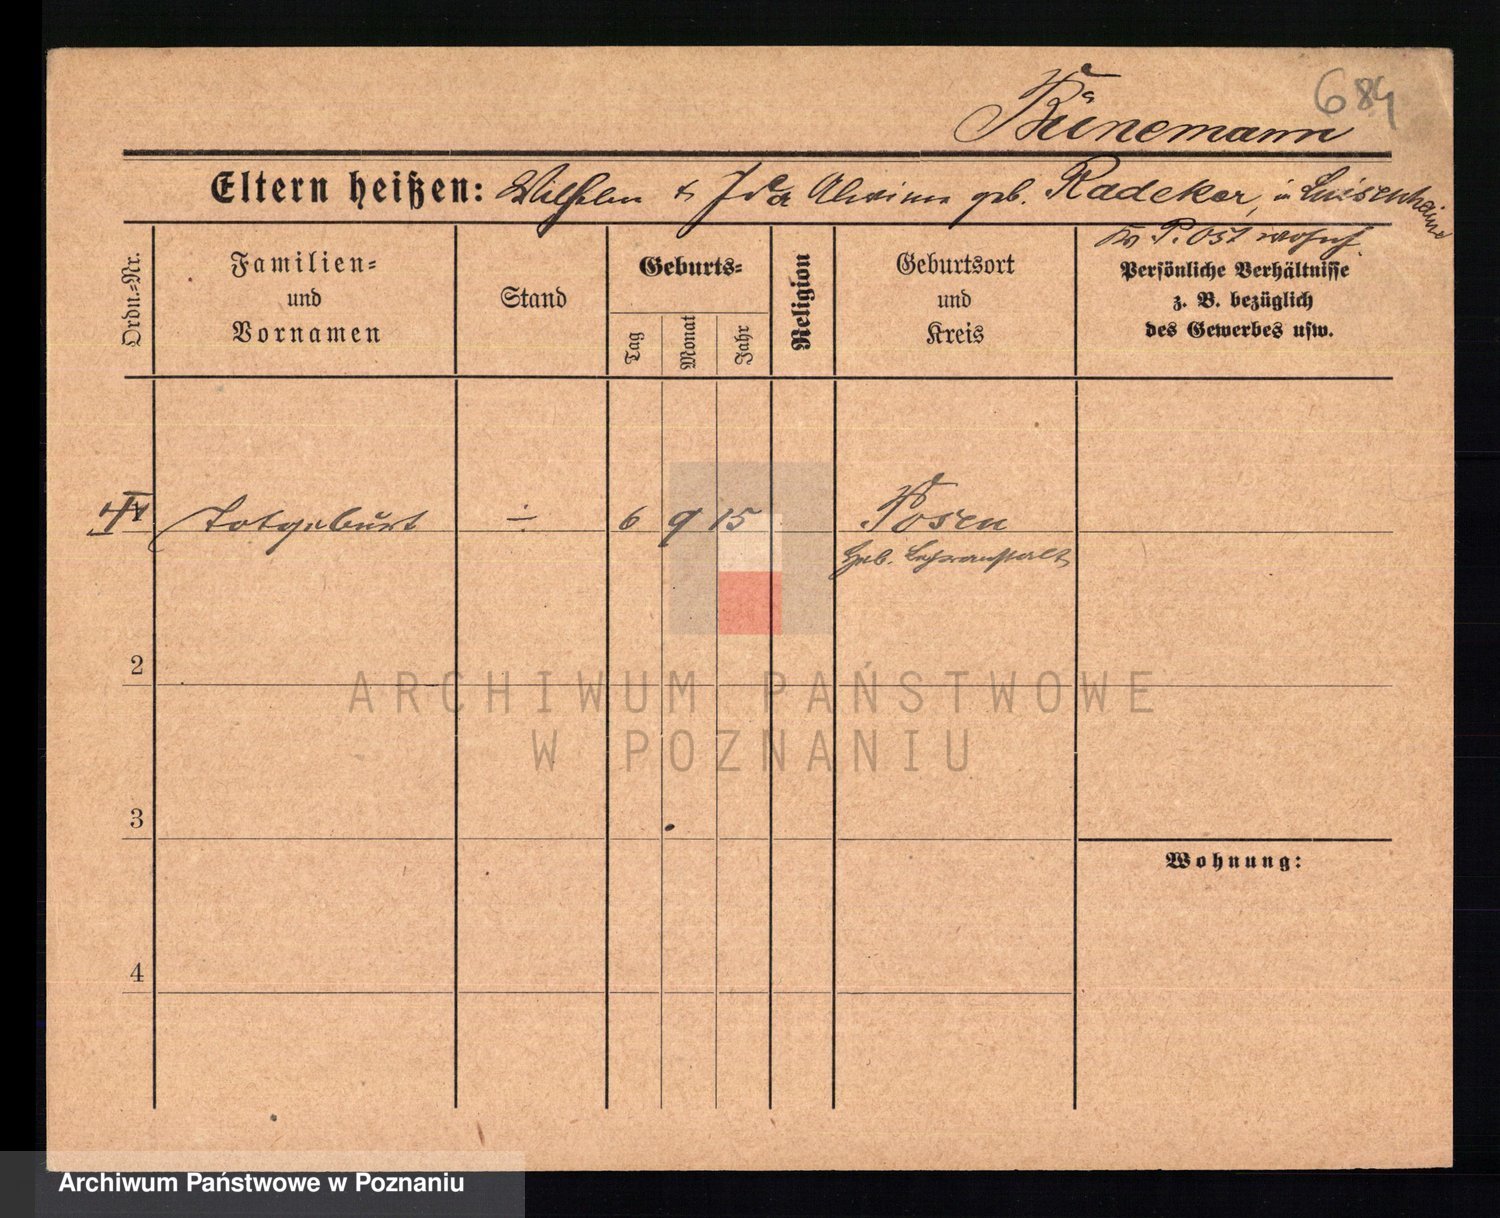 684
Bünemann
Eltern heißen: Wilhelm & Ida Alwine geb. Radeker, in Luisenhain
Kr. P. Ost wohnh.
Ordn.-Nr.
Familien- und Vornamen
Stand
Geburts-
Tag
Monat
Jahr
Religion
Geburtsort und Kreis
Persönliche Verhältnisse
z. B. bezüglich
des Gewerbes usw.
Totgeburt ÷ 6 9 15 Posen
Heb. Lehranstalt
2
ARCHIWUM PAŃSTWOWE
W POZNANIU
3
Wohnung:
4
Archiwum Państwowe w Poznaniu